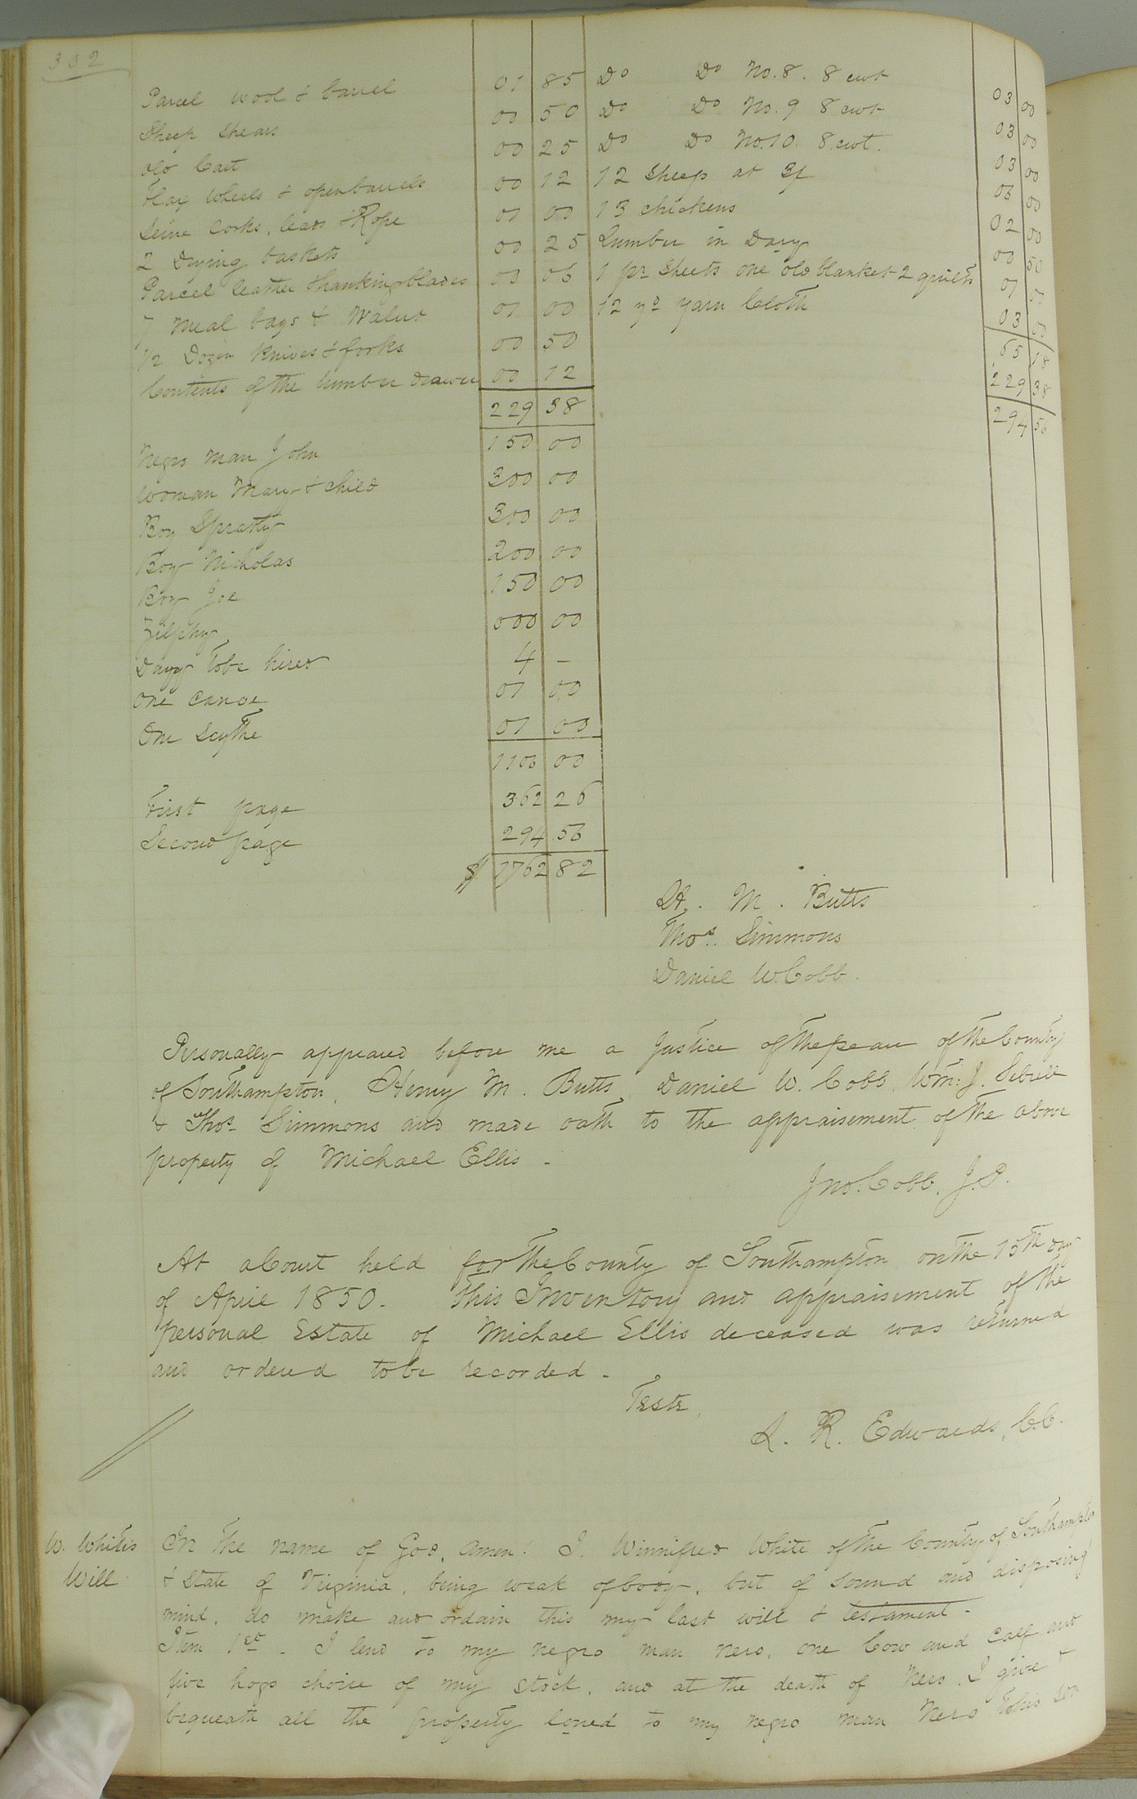 302
Parcel wool & barrel 01 85
Sheep Shears 00 50
Old Cart 00 25
Flax Wheels & open barrels 00 12
Seine Corks, leads & Rope 01 00
2 Drying baskets 00 25
Parcel leather & 00 06
7 meal bags & Walut 01 00
1/2 Dozen Knives & forks 00 50
Contents of the lumber drawer 00 12
229 38
Do Do No. 8. 8 cwt 03 00
Do Do No. 9 8 cwt 03 00
Do Do No. 10. 8. cwt. 03 00
12 Sheep at 3/ 03 00
13 chickens 02 00
Lumber in Dary 00 50
1 pr Sheets one old blanket 2 quilts 01 00
12 yd yarn Cloth 03 00
65 18
229 38
294 56
Negro man John 150 00
Woman Mary & child 300 00
Boy Spratty 300 00
Boy Nicholas 200 00
Boy Joe 150 00
Zilphy 000 00
Davy to be hired 4 –
One Canoe 01 00
One Scythe 01 00
1106 00
First page 362 26
Second page 294 56
$ 1762 82
H. M. Butts
Thos. Simmons
Daniel W. Cobb.
Personally appeared before me a Justice of the peace of the County
of Southampton, Henry M. Butts, Daniel W. Cobb, Wm: J. Sebrell
& Thos Simmons and made oath to the appraisement of the above
property of Michael Ellis -
Jno. Cobb, J.P.
At a Court held for the County of Southampton on the 15th day
of April 1850. This Inventory and appraisement of the
personal Estate of Michael Ellis deceased was returned
and ordered to be recorded -
Teste,
L. R. Edwards, C.C.
W. Whites
Will
In the name of God, Amen! I. Winnifred White of the County of Southampton
& State of Virginia, being weak of body, but of sound and disposing
mind, do make and ordain this my last will & testament -
Item 1st. I lend to my negro man Nero, one Cow and Calf and
five hogs choice of my stock, and at the death of Nero, I give &
bequeath all the property loned to my negro man Nero to his son